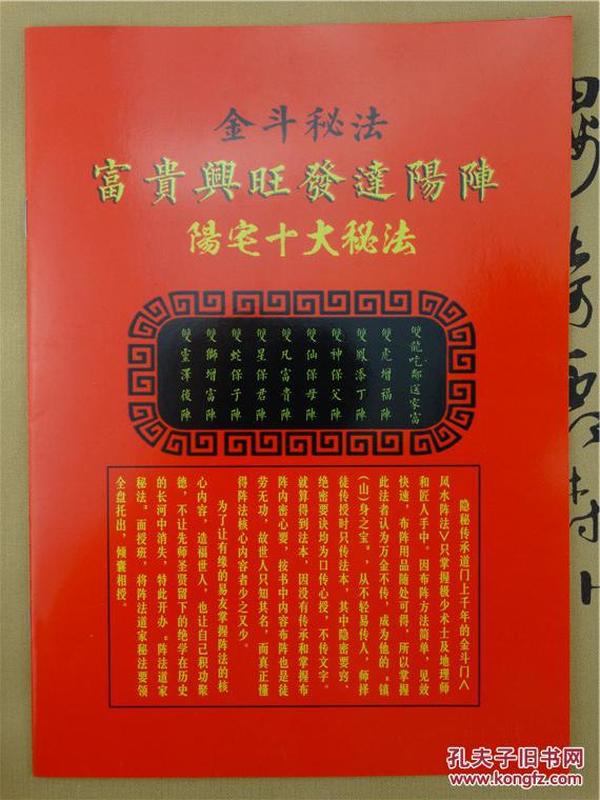 金斗秘法
富貴興旺發達陽陣
陽宅十大秘法
雙龍吃鄰送家富
雙虎增福陣
雙鳳添丁陣
雙神保父陣
雙仙保母陣
雙凡富貴陣
雙星保君陣
雙蛇保子陣
雙獅增富陣
雙靈澤後陣
隐秘传承道门上千年的金斗门<
风水阵法>只掌握极少术士及地理师
和匠人手中。因布阵方法简单，见效
快速，布阵用品随处可得，所以掌握
此法者认为万金不传，成为他的“镇
（山）身之宝”。，从不轻易传人，师择
徒传授时只传法本，其中隐密要窍、
绝密要诀均为口传心授，不传文字。
就算得到法本，因没有传承和掌握布
阵内密心要，按书中内容布阵也是徒
劳无功，故世人只知其名，而真正懂
得阵法核心内容者少之又少。
为了让有缘的易友掌握阵法的核
心内容，造福世人，也让自己积功聚
德，不让先师圣贤留下的绝学在历史
的长河中消失，特此开办“阵法道家
秘法”面授班，将阵法道家秘法要领
全盘托出，倾囊相授。
孔夫子旧书网
www.kongfz.com